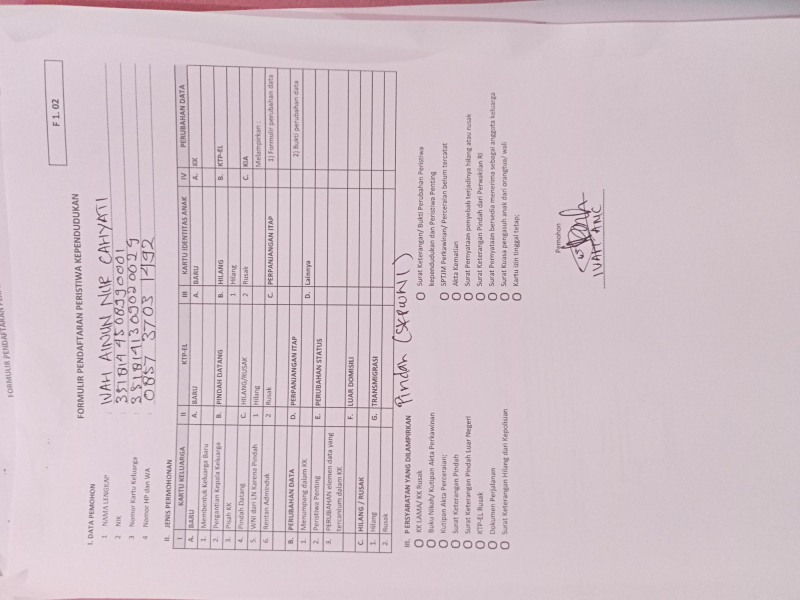 FORMULIR PENDAFTARAN
F 1. 02
FORMULIR PENDAFTARAN PERISTIWA KEPENDUDUKAN
I. DATA PEMOHON
1 NAMA LENGKAP : WAH AINUN NUR CAHYATI
2 NIK : 3518145508990001
3 Nomor Kartu Keluarga : 3518141309020029
4 Nomor HP dan WA : 0857 3703 1492
II. JENIS PERMOHONAN
I KARTU KELUARGA II KTP-EL III KARTU IDENTITAS ANAK IV PERUBAHAN DATA
A. BARU A. BARU A. BARU A. KK
1. Membentuk Keluarga Baru
2. Pergantian Kepala Keluarga B. PINDAH DATANG B. HILANG B. KTP-EL
3. Pisah KK 1 Hilang
4. Pindah Datang C. HILANG/RUSAK 2 Rusak C. KIA
5. WNI dari LN Karena Pindah 1 Hilang Melampirkan :
6. Rentan Adminduk 2 Rusak C. PERPANJANGAN ITAP 1) Formulir perubahan data
B. PERUBAHAN DATA D. PERPANJANGAN ITAP D. Lainnya 2) Bukti perubahan data
1. Menumpang dalam KK
2. Peristiwa Penting E. PERUBAHAN STATUS
3. PERUBAHAN elemen data yang tercantum dalam KK
F. LUAR DOMISILI
C. HILANG / RUSAK
1. Hilang G. TRANSMIGRASI
2. Rusak
III. PERSYARATAN YANG DILAMPIRKAN Pindah (SKPWNI)
KK LAMA/ KK Rusak
Buku Nikah/ Kutipan Akta Perkawinan
Kutipan Akta Perceraian;
Surat Keterangan Pindah
Surat Keterangan Pindah Luar Negeri
KTP-EL Rusak
Dokumen Perjalanan
Surat Keterangan Hilang dari Kepolisian
Surat Keterangan/ Bukti Perubahan Peristiwa
Kependudukan dan Peristiwa Penting
SPTJM Perkawinan/ Perceraian belum tercatat
Akta Kematian
Surat Pernyataan penyebab terjadinya hilang atau rusak
Surat Keterangan Pindah dari Perwakilan RI
Surat Pernyataan bersedia menerima sebagai anggota keluarga
Surat Kuasa pengasuh anak dari orangtua/ wali
Kartu izin tinggal tetap;
Pemohon
WAH ANC